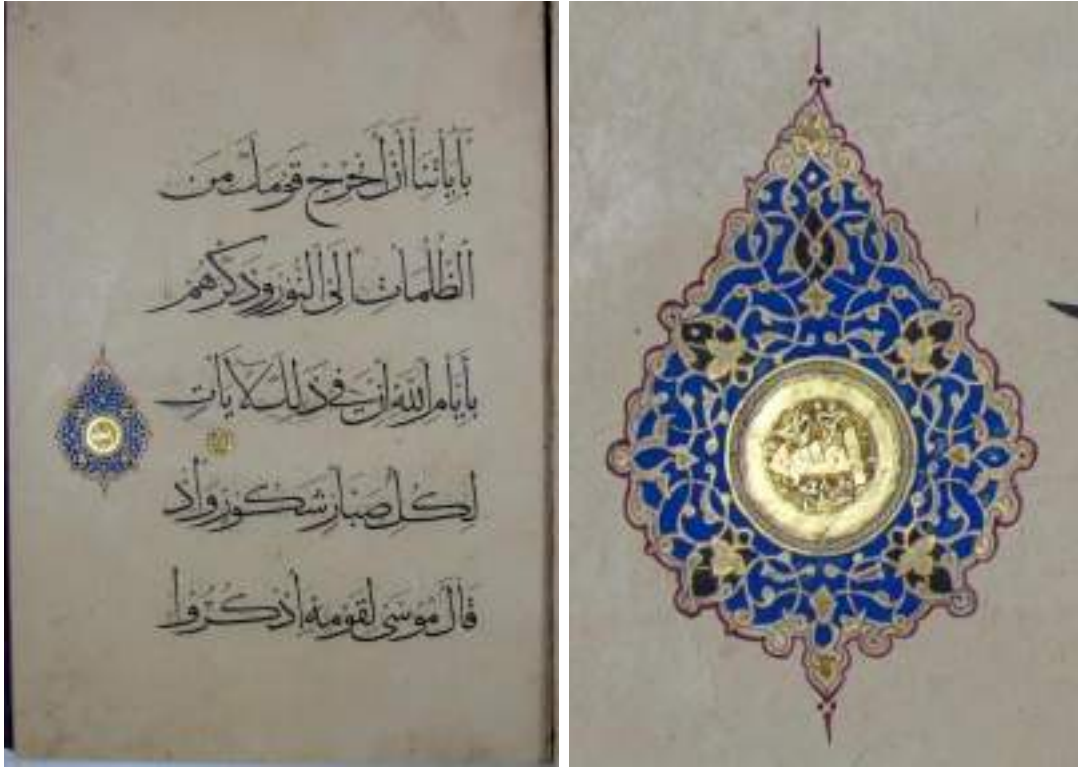 بِآيَاتِنَا أَنْ أَخْرِجْ قَوْمَكَ مِنَ
الظُّلُمَاتِ إِلَى النُّورِ وَذَكِّرْهُمْ
بِأَيَّامِ اللَّهِ إِنَّ فِي ذَلِكَ لَآيَاتٍ
لِكُلِّ صَبَّارٍ شَكُورٍ وَإِذْ
قَالَ مُوسَى لِقَوْمِهِ اذْكُرُوا